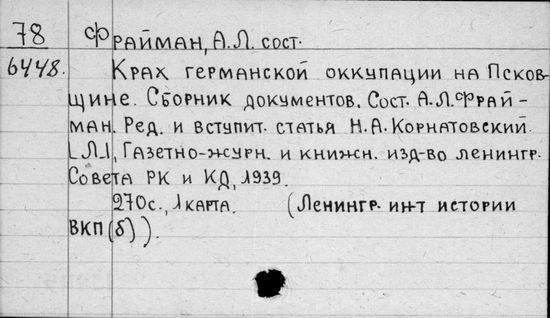 78 ФРАЙМАН, А.Л. сост.
6448. Крах германской оккупации на Псков-
щине. Сборник документов. Сост. А.Л.Фрай-
ман. Ред. и вступит. статья Н.А.Корнатовский.
[Л.], Газетно-журн. и книжн. изд-во ленингр.
Совета РК и КД, 1939.
270с., 1 карта. (Ленингр. ин-т истории
ВКП(б)).